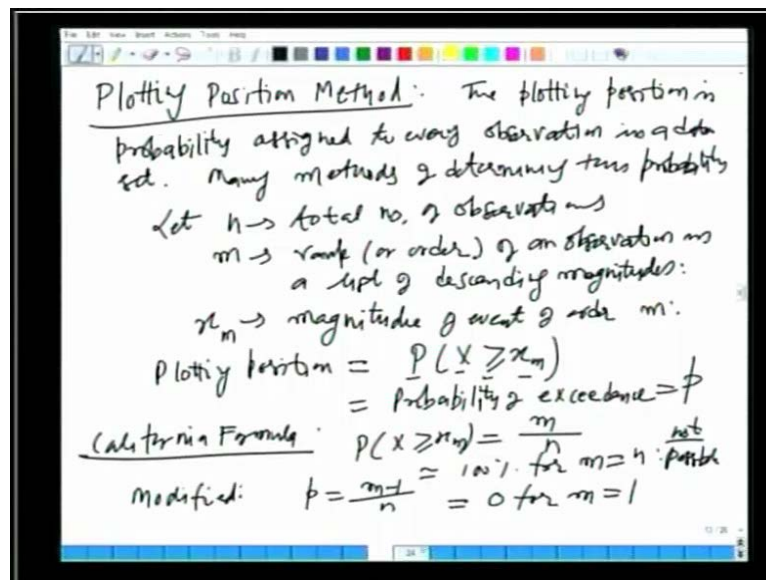 File Edit View Insert Actions Tools Help
Plotting Position Method: The plotting position is
probability assigned to every observation in a data
set. Many methods of determining this probability
Let n → total no. of observations
m → rank (or order) of an observation in
a list of descending magnitudes:
x_m → magnitude of event of order m:
Plotting position = P(X ≥ x_m)
= Probability of exceedance = p
California Formula: P(X ≥ x_m) = m/n not
= 100% for m = n : possible
Modified: p = m-1/n = 0 for m = 1
24